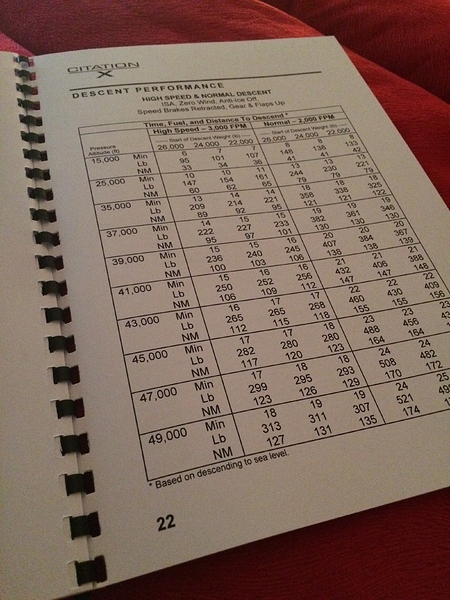 CITATION
X
DESCENT PERFORMANCE
HIGH SPEED & NORMAL DESCENT
ISA, Zero Wind, Anti-Ice Off,
Speed Brakes Retracted, Gear & Flaps Up
Time, Fuel, and Distance To Descend *
High Speed – 3,000 FPM Normal – 2,000 FPM
Pressure Altitude (ft) Start of Descent Weight (lb) Start of Descent Weight (lb)
26,000 24,000 22,000 26,000 24,000 22,000
15,000 Min 6 7 7 8 8 8
Lb 95 101 107 148 138 133
NM 33 34 36 41 41 42
25,000 Min 10 10 11 13 13 13
Lb 147 154 161 244 230 221
NM 60 62 65 79 79 79
35,000 Min 13 14 14 18 18 18
Lb 209 214 221 358 338 325
NM 89 92 95 121 121 122
37,000 Min 14 15 15 19 19 19
Lb 222 227 233 382 361 346
NM 95 97 101 130 130 130
39,000 Min 15 15 16 20 20 20
Lb 236 240 245 407 384 367
NM 100 103 106 138 138 139
41,000 Min 15 16 16 21 21 21
Lb 250 252 256 432 406 388
NM 106 109 112 147 147 148
43,000 Min 16 17 17 22 22 22
Lb 265 265 268 460 430 409
NM 112 115 118 155 155 156
45,000 Min 17 17 18 23 23
Lb 282 280 280 488 456
NM 117 120 123 164 164
47,000 Min 17 18 18 24 24
Lb 299 295 293 508 482
NM 123 126 129 170 172
49,000 Min 18 19 19 24 25
Lb 313 311 307 521
NM 127 131 135 174
* Based on descending to sea level.
22